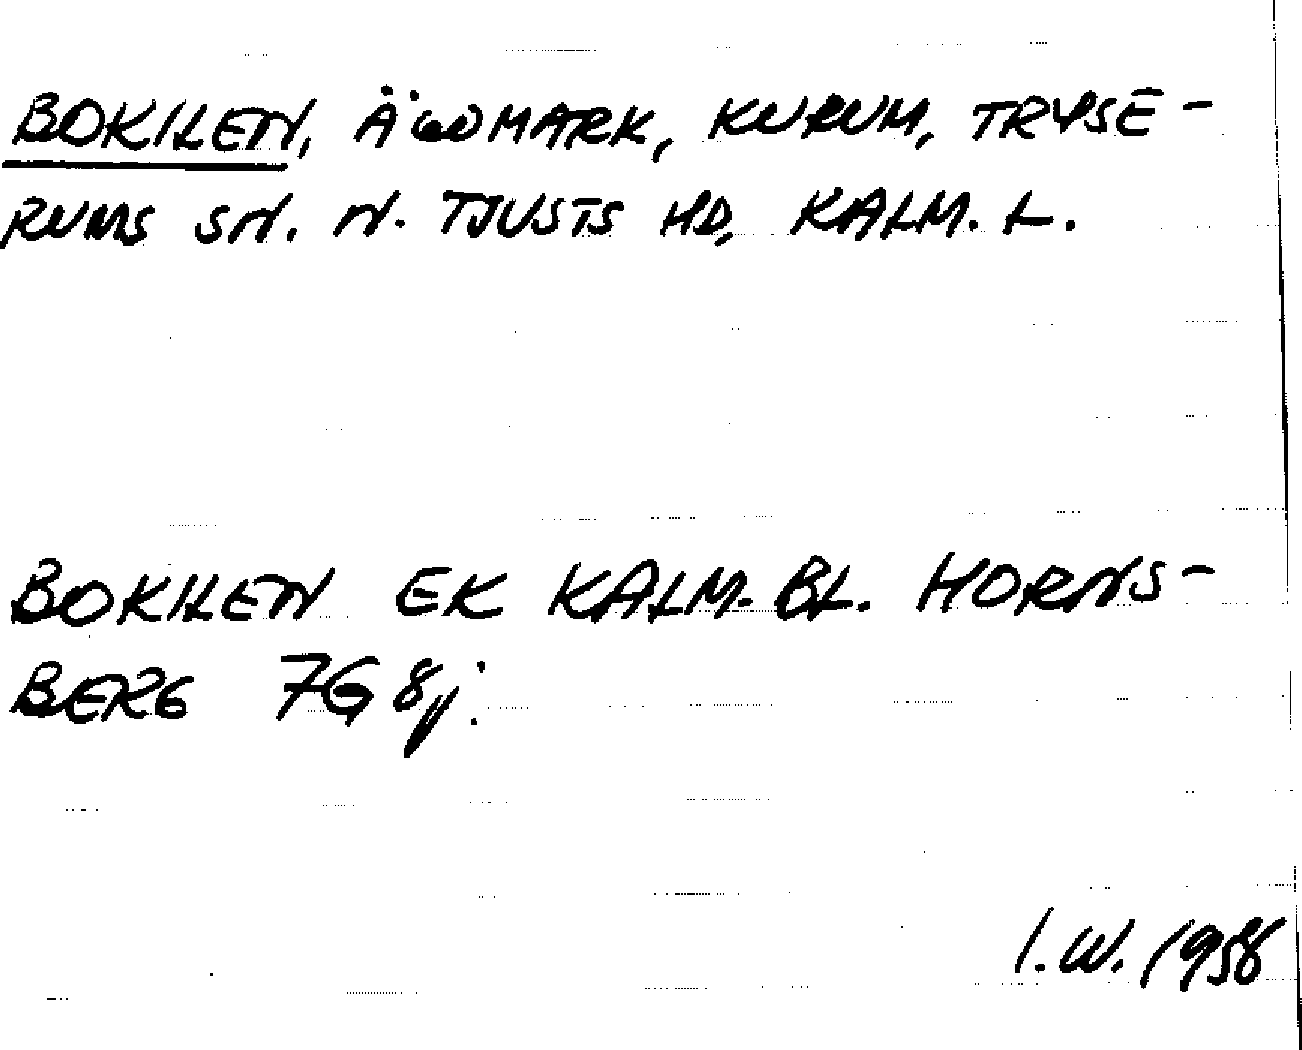 BOKILEN, ÄGOMARK, KURUM, TRYSE-
RUMS SN. N. TJUSTS HD, KALM. L.
BOKILEN EK KALM. BL. HORNS-
BERG 7G 8j.
I.W. 1958